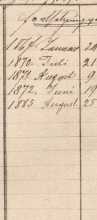 1867. Januar 24
1870. Juli 21
1871. August 9
1872. Juni 19
1885. August 25